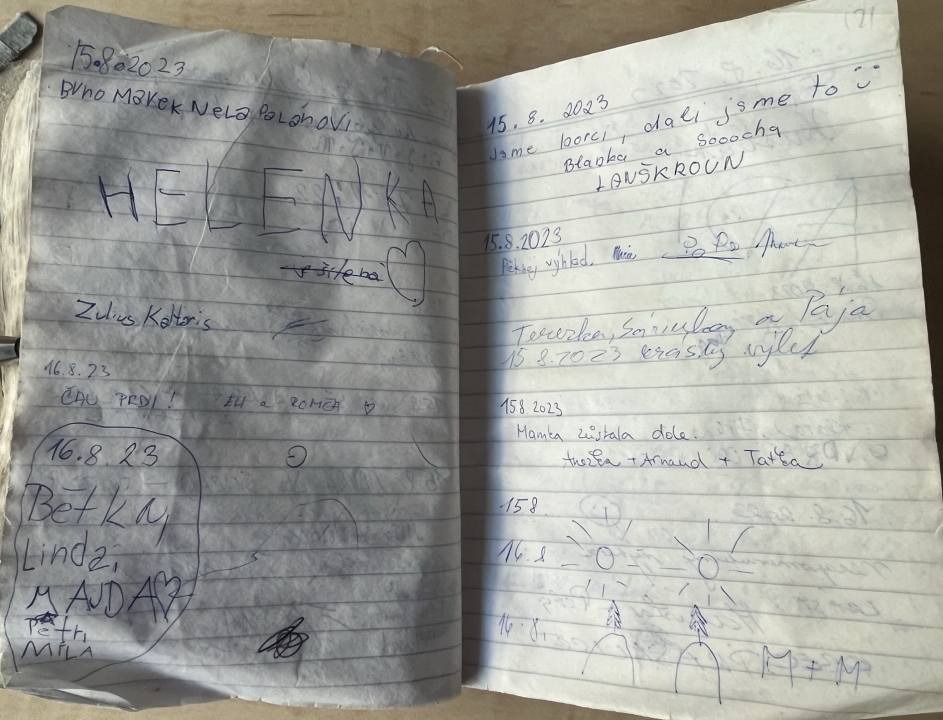 15.8.2023
Brno Marek Nela Palánovi
HELENKA
Zulius Kattoris
16.8.23
ČAU PRDI! ELI a ROMČA
16.8.23
Bětka,
Linda,
MAJDA
Petr,
MÍLA
15.8.2023
Jsme borci, dali jsme to
Blanka a Sooocha
LANŠKROUN
15.8.2023
výhled.
Terezka, a Pája
15.8.2023 krásný výlet
15.8.2023
Mamka zůstala dole.
Anežka + Arnaud + Taťka
15.8.
16.8
16.8.
M+M